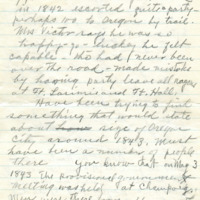 in 1842 escorted quite a party -
perhaps 100 to Oregon by trail.
Mrs Victor says he was so
happy-go-luckey he felt
capable & tho had never been
over the road, made mistake
by having party leave all wagons
at Ft. Laramie and Ft. Hall.
Have been trying to find
something that would state
about size of Oregon
City around 1843. Must
have been a number of people
there you know that in May 3
1843 the Provisional government
meeting was held at Champoeg.
were